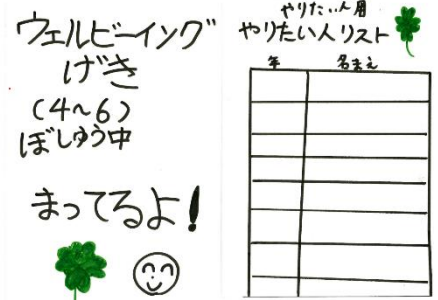 ウェルビーイング
げき
(4〜6)
ぼしゅう中
まってるよ!
やりたい人用
やりたい人リスト
年 名まえ